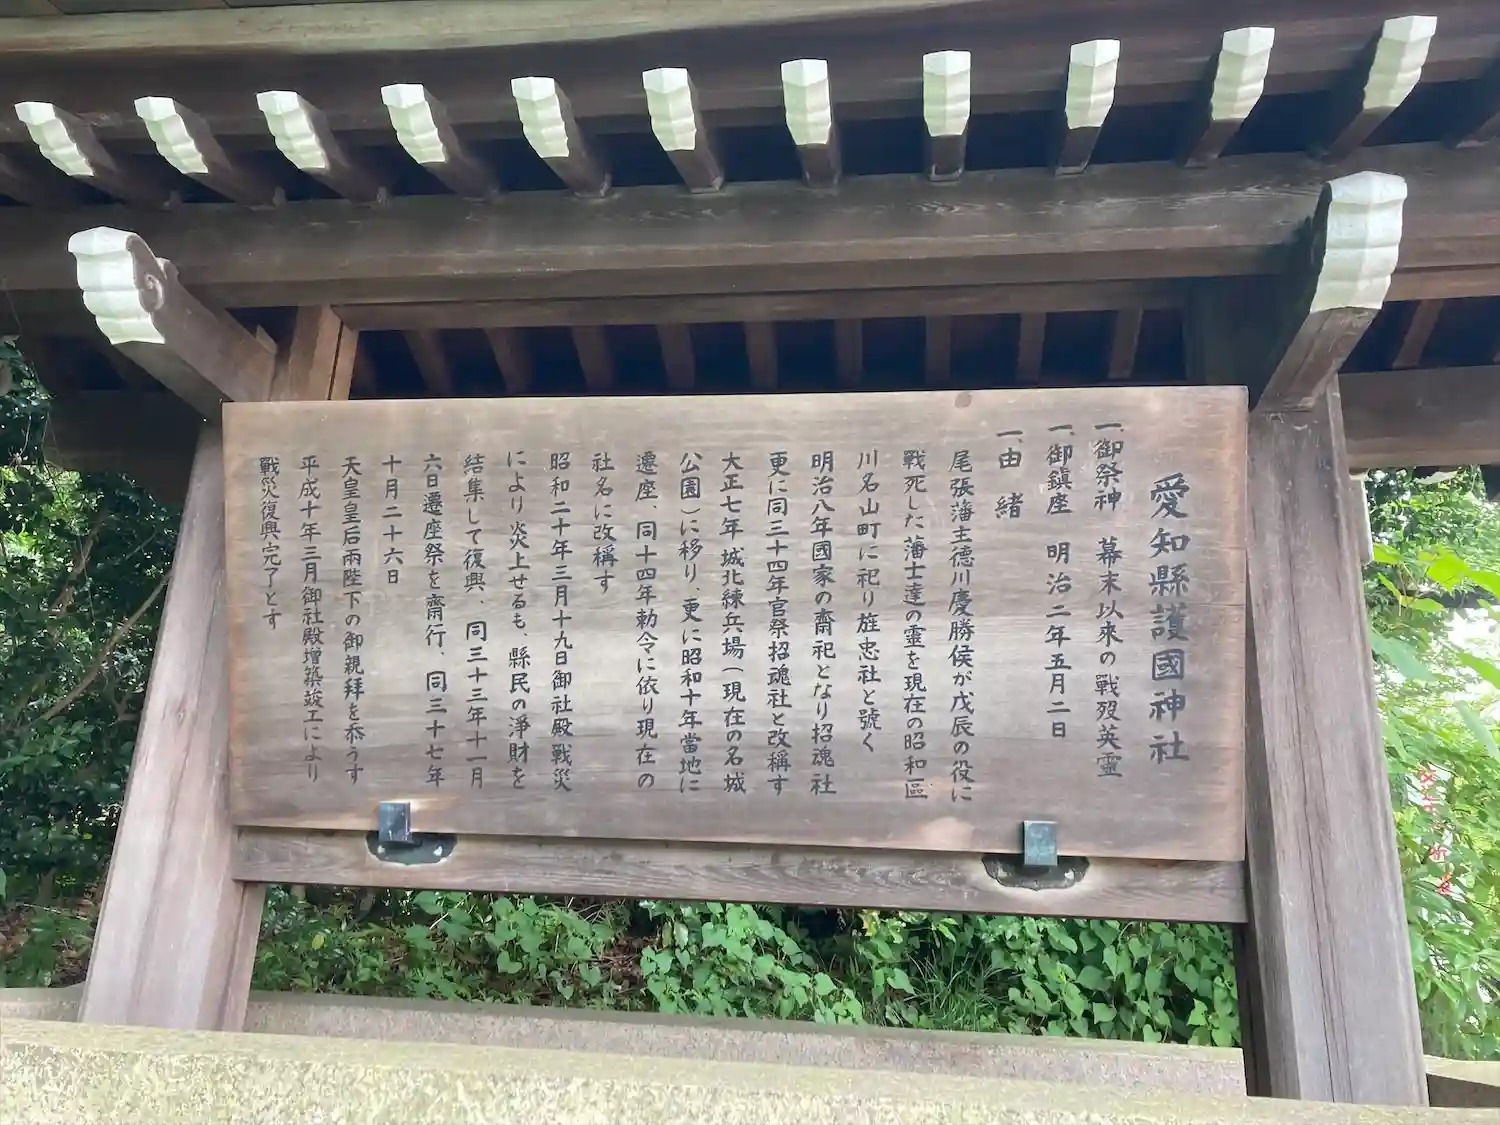 愛知縣護國神社
一、御祭神 幕末以来の戦歿英霊
一、御鎮座 明治二年五月二日
一、由緒
尾張藩主徳川慶勝侯が戊辰の役に
戦死した藩士達の靈を現在の昭和區
川名山町に祀り旌忠社と號く
明治八年國家の齋祀となり招魂社
更に同三十四年官祭招魂社と改稱す
大正七年城北練兵場(現在の名城
公園)に移り、更に昭和十年當地に
遷座、同十四年勅令に依り現在の
社名に改稱す
昭和二十年三月十九日御社殿戦災
により炎上せるも、縣民の淨財を
結集して復興、同三十三年十一月
六日遷座祭を齋行、同三十七年
十月二十六日
天皇皇后両陛下の御親拜を忝うす
平成十年三月御社殿增築竣工により
戰災復興完了とす